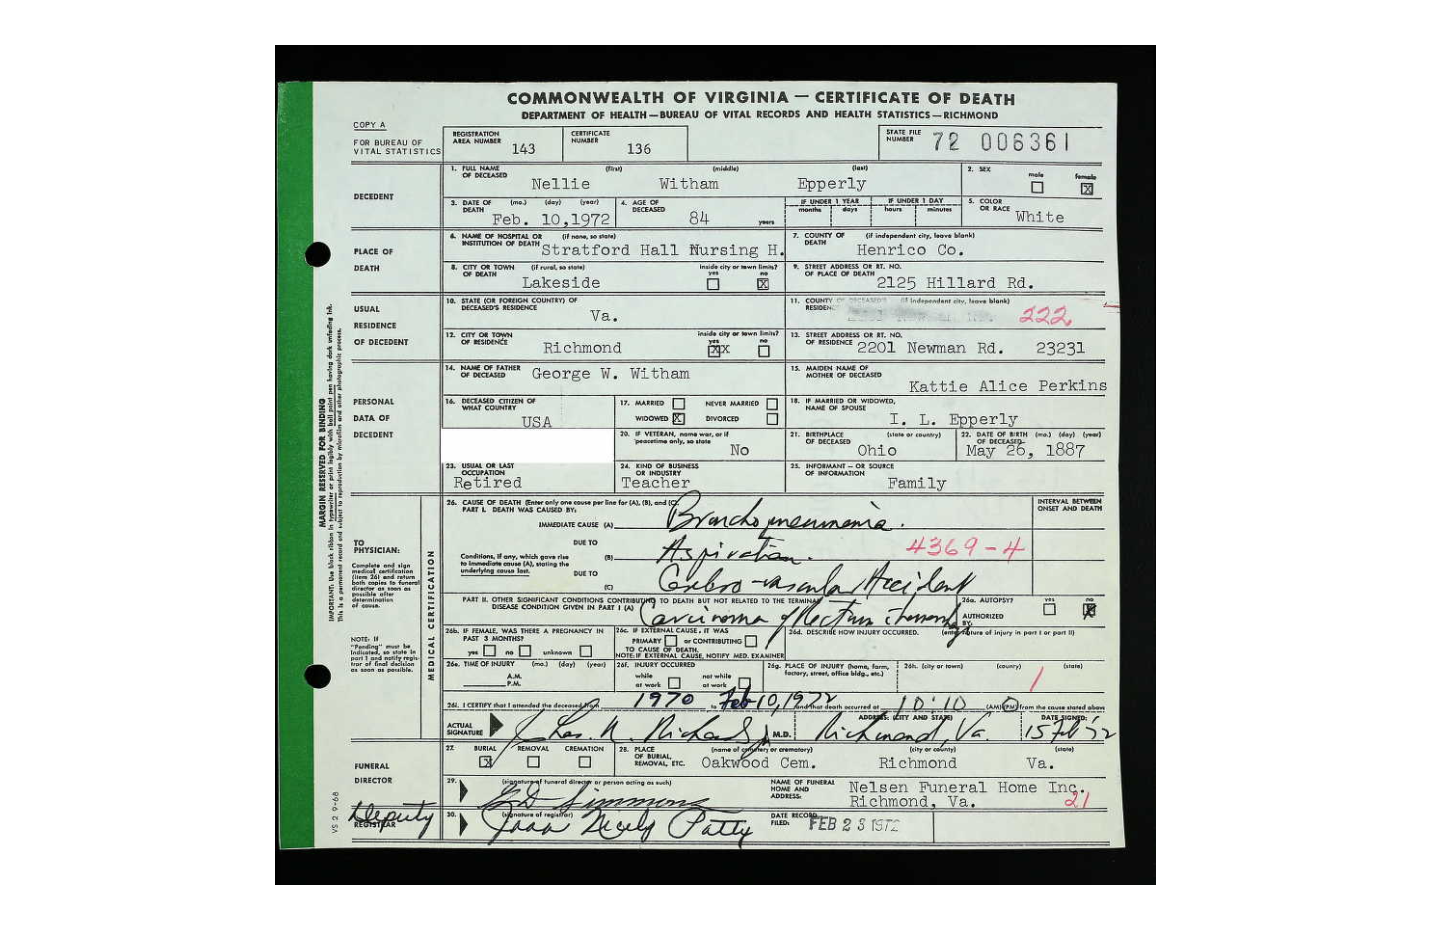 COMMONWEALTH OF VIRGINIA — CERTIFICATE OF DEATH
DEPARTMENT OF HEALTH—BUREAU OF VITAL RECORDS AND HEALTH STATISTICS—RICHMOND
COPY A
FOR BUREAU OF
VITAL STATISTICS
REGISTRATION
AREA NUMBER 143
CERTIFICATE
NUMBER 136
STATE FILE
NUMBER 72 006361
DECEDENT
1. FULL NAME (first) (middle) (last)
OF DECEASED Nellie Witham Epperly
2. SEX male female X
3. DATE OF (mo.) (day) (year)
DEATH Feb. 10,1972
4. AGE OF
DECEASED 84 years
IF UNDER 1 YEAR months days
IF UNDER 1 DAY hours minutes
5. COLOR
OR RACE White
PLACE OF
DEATH
6. NAME OF HOSPITAL OR (if none, so state)
INSTITUTION OF DEATH Stratford Hall Nursing H.
7. COUNTY OF (if independent city, leave blank)
DEATH Henrico Co.
8. CITY OR TOWN (if rural, so state) inside city or town limits?
OF DEATH Lakeside yes no X
9. STREET ADDRESS OR RT. NO.
OF PLACE OF DEATH 2125 Hillard Rd.
USUAL
RESIDENCE
OF DECEDENT
10. STATE (OR FOREIGN COUNTRY) OF
DECEASED'S RESIDENCE Va.
11. COUNTY OF DECEASED'S (if independent city, leave blank)
RESIDENCE 222
12. CITY OR TOWN inside city or town limits?
OF RESIDENCE Richmond yes XX no
13. STREET ADDRESS OR RT. NO.
OF RESIDENCE 2201 Newman Rd. 23231
PERSONAL
DATA OF
DECEDENT
14. NAME OF FATHER
OF DECEASED George W. Witham
15. MAIDEN NAME OF
MOTHER OF DECEASED Kattie Alice Perkins
16. DECEASED CITIZEN OF
WHAT COUNTRY USA
17. MARRIED NEVER MARRIED
WIDOWED X DIVORCED
18. IF MARRIED OR WIDOWED,
NAME OF SPOUSE I. L. Epperly
20. IF VETERAN, name war, or if
peacetime only, so state No
21. BIRTHPLACE (state or country)
OF DECEASED Ohio
22. DATE OF BIRTH (mo.) (day) (year)
OF DECEASED May 26, 1887
23. USUAL OR LAST
OCCUPATION
Retired
24. KIND OF BUSINESS
OR INDUSTRY
Teacher
25. INFORMANT — OR SOURCE
OF INFORMATION Family
MARGIN RESERVED FOR BINDING
IMPORTANT: Use black ribbon in typewriter or print legibly with ball point pen having dark unfading ink.
This is a permanent record and subject to reproduction by microfilm and other photographic process.
TO
PHYSICIAN:
Complete and sign
medical certification
(item 26) and return
both copies to funeral
director as soon as
possible after
determination
of cause.
NOTE: If
"Pending" must be
indicated, so state in
part I and notify regis-
trar of final decision
as soon as possible.
MEDICAL CERTIFICATION
26. CAUSE OF DEATH (Enter only one cause per line for (A), (B), and (C)
PART I. DEATH WAS CAUSED BY:
INTERVAL BETWEEN
ONSET AND DEATH
IMMEDIATE CAUSE (A) Bronchopneumonia.
DUE TO
Conditions, if any, which gave rise
to immediate cause (A), stating the
underlying cause last.
(B) Aspiration. 4369-4
DUE TO
(C) Cerebro-vascular Accident
PART II. OTHER SIGNIFICANT CONDITIONS CONTRIBUTING TO DEATH BUT NOT RELATED TO THE TERMINAL
DISEASE CONDITION GIVEN IN PART I (A) Carcinoma of Rectum
26a. AUTOPSY? yes no X
AUTHORIZED
BY:
26b. IF FEMALE, WAS THERE A PREGNANCY IN
PAST 3 MONTHS?
yes no unknown
26c. IF EXTERNAL CAUSE, IT WAS
PRIMARY or CONTRIBUTING
TO CAUSE OF DEATH.
NOTE: IF EXTERNAL CAUSE, NOTIFY MED. EXAMINER
26d. DESCRIBE HOW INJURY OCCURRED. (enter nature of injury in part I or part II)
26e. TIME OF INJURY (mo.) (day) (year)
A.M.
P.M.
26f. INJURY OCCURRED
while at work not while at work
26g. PLACE OF INJURY (home, farm,
factory, street, office bldg., etc.)
26h. (city or town) (county) (state)
1
26i. I CERTIFY that I attended the deceased from 1970 to Feb 10, 1972 and that death occurred at 10:10 (AM)(PM) from the cause stated above
ACTUAL
SIGNATURE Chas. N. Richards Jr M.D.
ADDRESS: (CITY AND STATE) Richmond, Va.
DATE SIGNED: 15 Feb '72
FUNERAL
DIRECTOR
27. BURIAL X REMOVAL CREMATION
28. PLACE (name of cemetery or crematory) (city or county) (state)
OF BURIAL,
REMOVAL, ETC. Oakwood Cem. Richmond Va.
29. (signature of funeral director or person acting as such)
E D Simmons
NAME OF FUNERAL
HOME AND
ADDRESS: Nelsen Funeral Home Inc.
Richmond, Va. 21
Deputy
REGISTRAR
30. (signature of registrar)
Patty
DATE RECORD
FILED: FEB 23 1972
VS 2 9-68